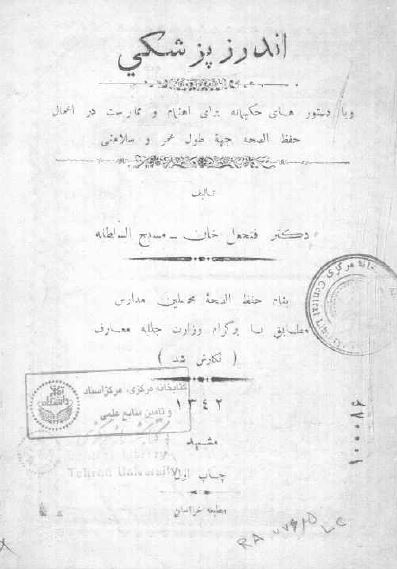 اندرز پزشکی
ویا دستور های حکیمانه برای اهتمام و ممارست در اعمال
حفظ الصحه جهة طول عمر و سلامتی
تالیف
دکتر فتحعلی خان ــ مسیح السلطنه
بنام حفظ الصحهٔ محصلین مدارس
مطابق با پرگرام وزارت جلیله معارف
( نگارش شد )
کتابخانه مرکزی، مرکز اسناد
و تامین منابع علمی
۱۳۴۲
مشهد
Library
Tehran University
چاپ اول
مطبعه خراسان
۱۰۰۰۸۶
مرکزی
Central
RA
LC